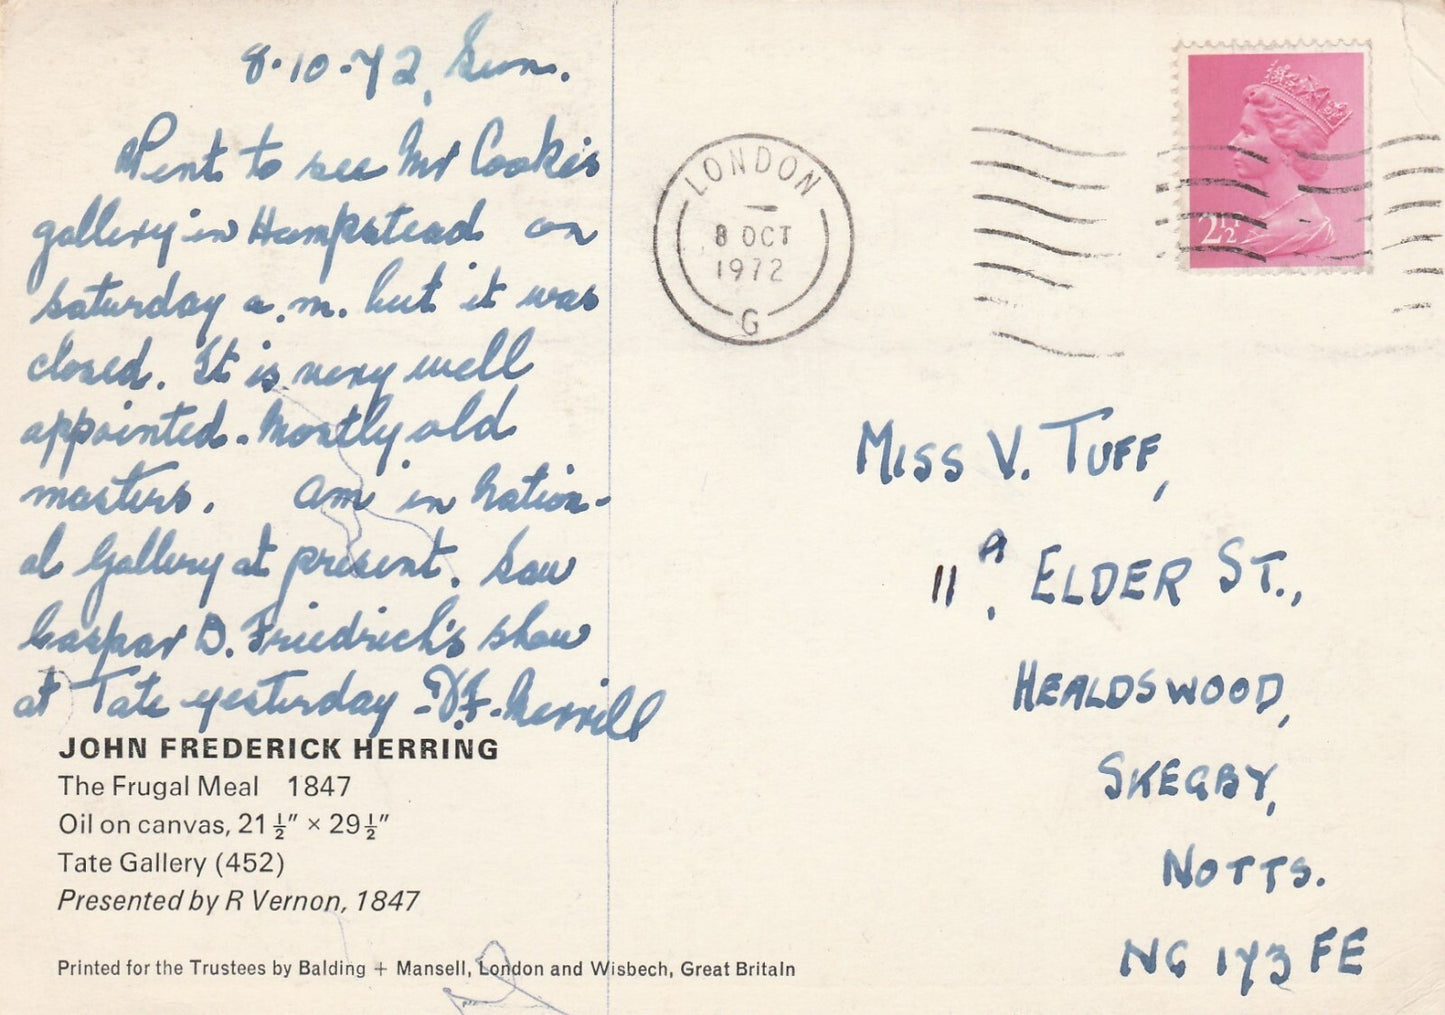 8.10.72, Sun.
Went to see Mr Cooke's
gallery in Hampstead on
saturday a.m. but it was
closed. It is very well
appointed. Mostly old
masters. Am in Nation-
al Gallery at present. Saw
Caspar D. Friedrich's show
at Tate yesterday - D.F. Merrill
JOHN FREDERICK HERRING
The Frugal Meal 1847
Oil on canvas, 21½″ × 29½″
Tate Gallery (452)
Presented by R Vernon, 1847
Printed for the Trustees by Balding + Mansell, London and Wisbech, Great Britain
LONDON
8 OCT
1972
G
2½
MISS V. TUFF,
11A, ELDER ST.,
HEALDSWOOD,
SKEGBY,
NOTTS.
NG 173FE